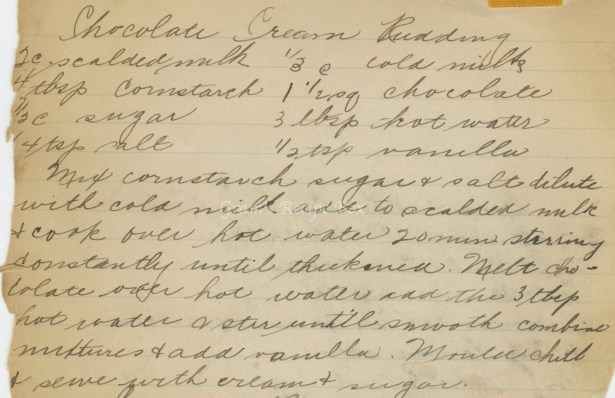 Chocolate Cream Pudding
2c. scalded milk 1/3 c cold milk
4 tbsp cornstarch 1 1/2 sq chocolate
1/2c sugar 3 tbsp hot water
1/4 tsp salt 1/2 tsp vanilla
Mix cornstarch sugar & salt dilute
with cold milk add to scalded milk
& cook over hot water 20 min stirring
constantly until thickened. Melt cho-
colate over hot water add the 3 tbsp
hot water & stir until smooth combine
mixtures & add vanilla. Mould chill
& serve with cream & sugar.